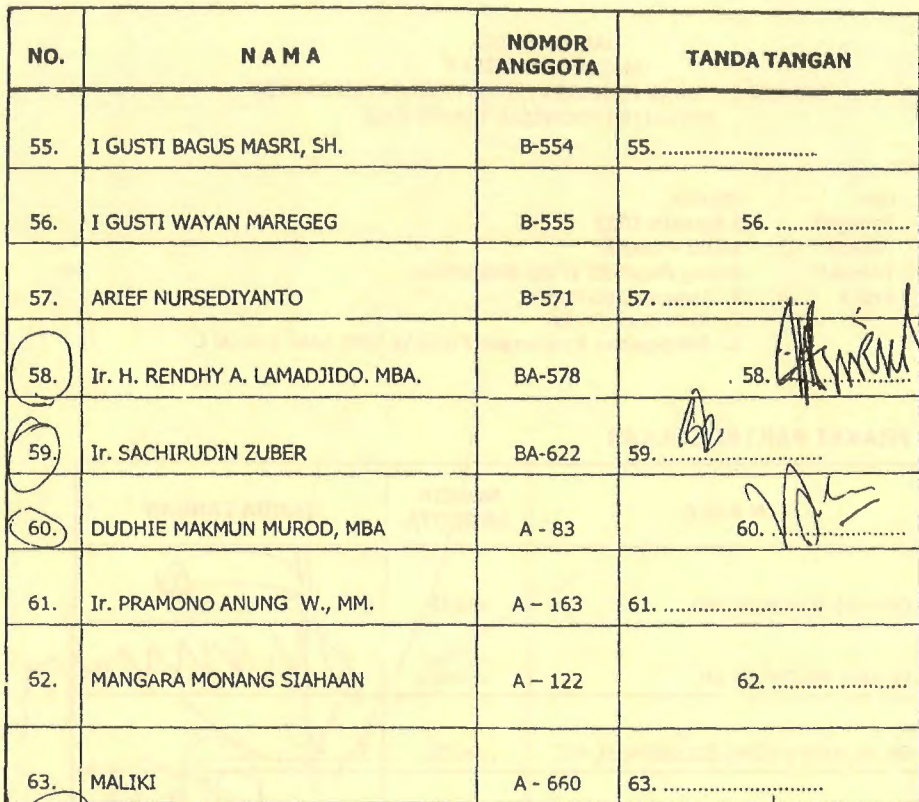 NO. N A M A NOMOR ANGGOTA TANDA TANGAN
55. I GUSTI BAGUS MASRI, SH. B-554 55. ............................
56. I GUSTI WAYAN MAREGEG B-555 56. ........................
57. ARIEF NURSEDIYANTO B-571 57. ............................
58. Ir. H. RENDHY A. LAMADJIDO. MBA. BA-578 58. ........................
59. Ir. SACHIRUDIN ZUBER BA-622 59. ............................
60. DUDHIE MAKMUN MUROD, MBA A - 83 60. ........................
61. Ir. PRAMONO ANUNG W., MM. A – 163 61. ............................
52. MANGARA MONANG SIAHAAN A – 122 62. ........................
63. MALIKI A - 660 63. ............................